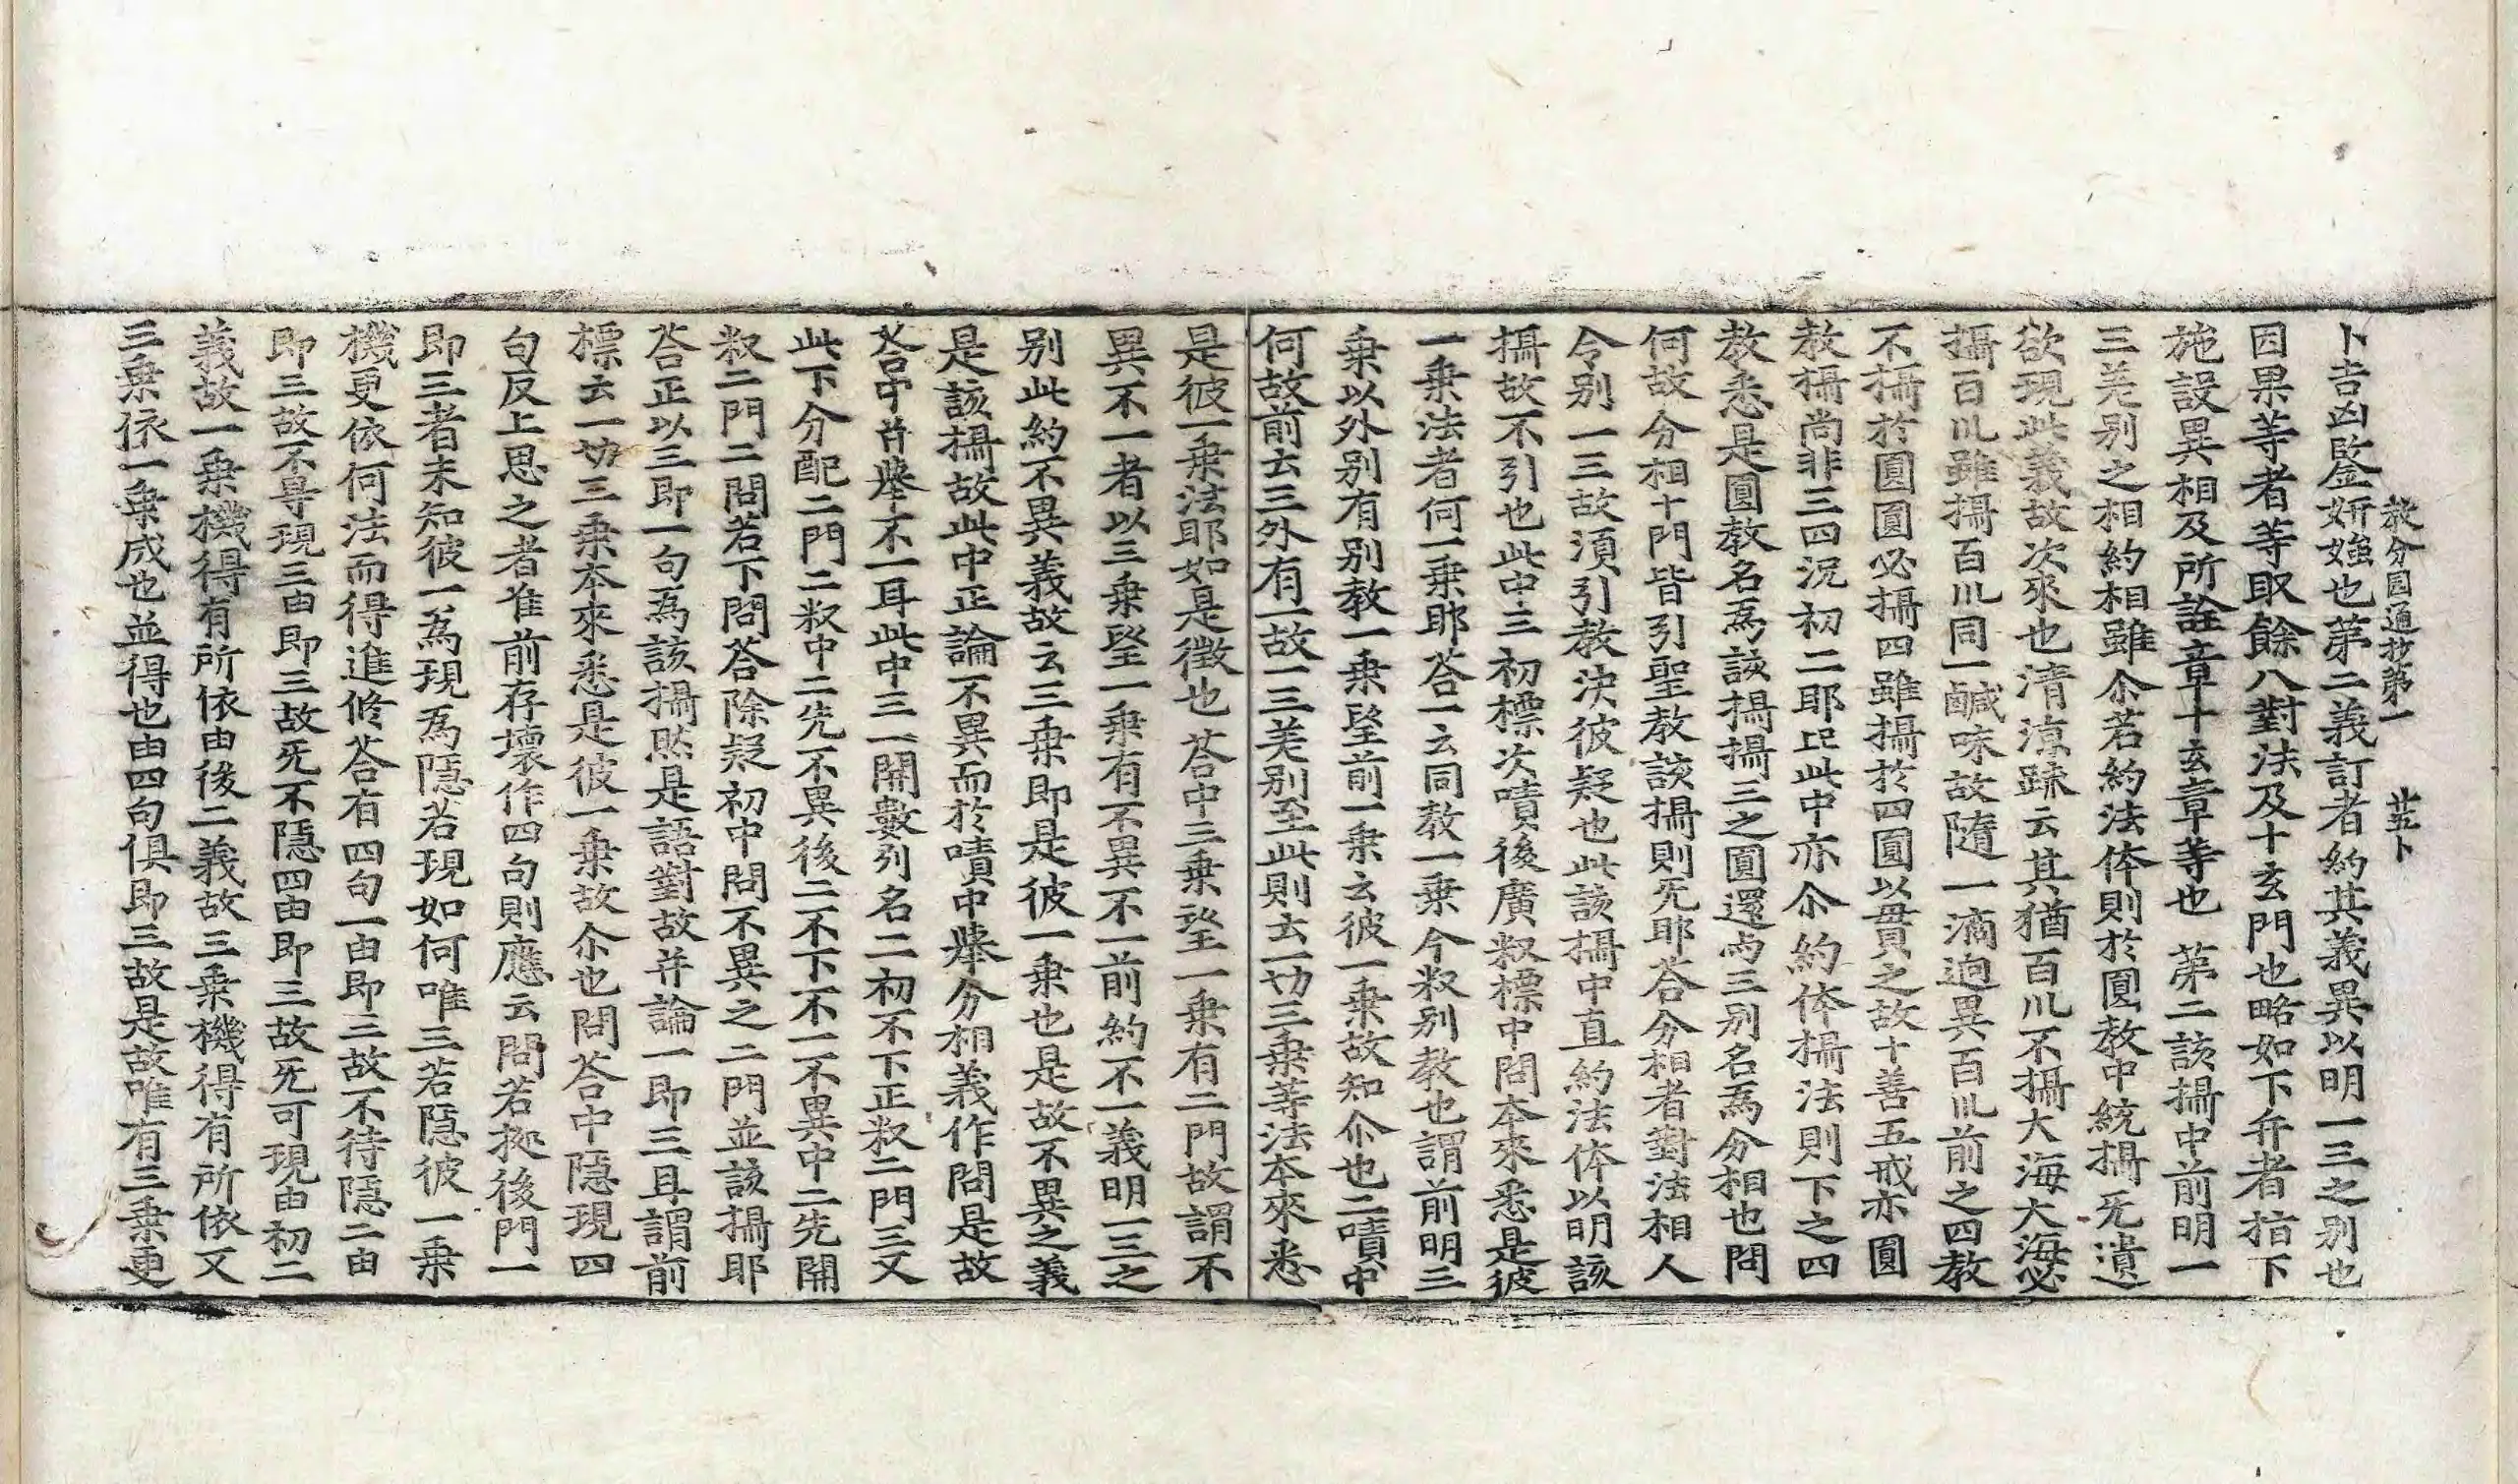 教分圓通抄第一 廿五卜
卜吉凶鑒姸媸也第二義訂者約其義異以明一三之別也
因果等者等取餘八對法及十玄門也略如下弁者指下
施設異相及所詮章十玄章等也 第二該攝中前明一
三差別之相約相雖尒若約法体則於圓敎中統攝旡遺
欲現此義故次來也淸涼䟽云其猶百川不攝大海大海必
攝百川雖攝百川同一鹹味故隨一滴逈異百川前之四敎
不攝於圓圓必攝四雖攝於四圓以貫之故十善五戒亦圓
敎攝尚非三四況初二耶比此中亦尒約体攝法則下之四
敎悉是圓敎名爲該攝攝三之圓還与三別名爲分相也問
何故分相十門皆引聖敎該攝則旡耶荅分相者對法相人
令別一三故湏引敎決彼疑也此該攝中直約法体以明該
攝故不引也此中三初標次嘖後廣䆁標中問本來悉是彼
一乗法者何一乗耶荅一云同敎一乗今䆁別敎也謂前明三
乗以外別有別敎一乗望前一乗云彼一乗故知尒也二嘖中
何故前去三外有一故一三差別至此則去一切三乗等法本來悉
是彼一乗法耶如是徵也荅中三乗望一乗有二門故謂不
異不一者以三乗望一乗有不異不一前約不一義明一三之
別此約不異義故云三乗即是彼一乗也是故不異之義
是該攝故此中正論不異而於嘖中擧分相義作問是故
荅中并擧不一耳此中三一開數列名二初不下正䆁二門三又
此下分配二門二䆁中二先不異後二不下不一不異中二先開
䆁二門二問若下問荅除疑初中問不異之二門並該攝耶
荅正以三即一句爲該攝然是語對故并論一即三耳謂前
標云一切三乗本來悉是彼一乗故尒也問荅中隱現四
句反上思之者准前存壞作四句則應云問若㨿後門一
即三者未知彼一爲現爲隱若現如何唯三若隱彼一乗
機更依何法而得進修荅有四句一由即三故不待隱二由
即三故不导現三由即三故旡不隱四由即三故旡可現由初二
義故一乗機得有所依由後二義故三乗機得有所依又
三乗依一乗成也並得也由四句俱即三故是故唯有三乗更